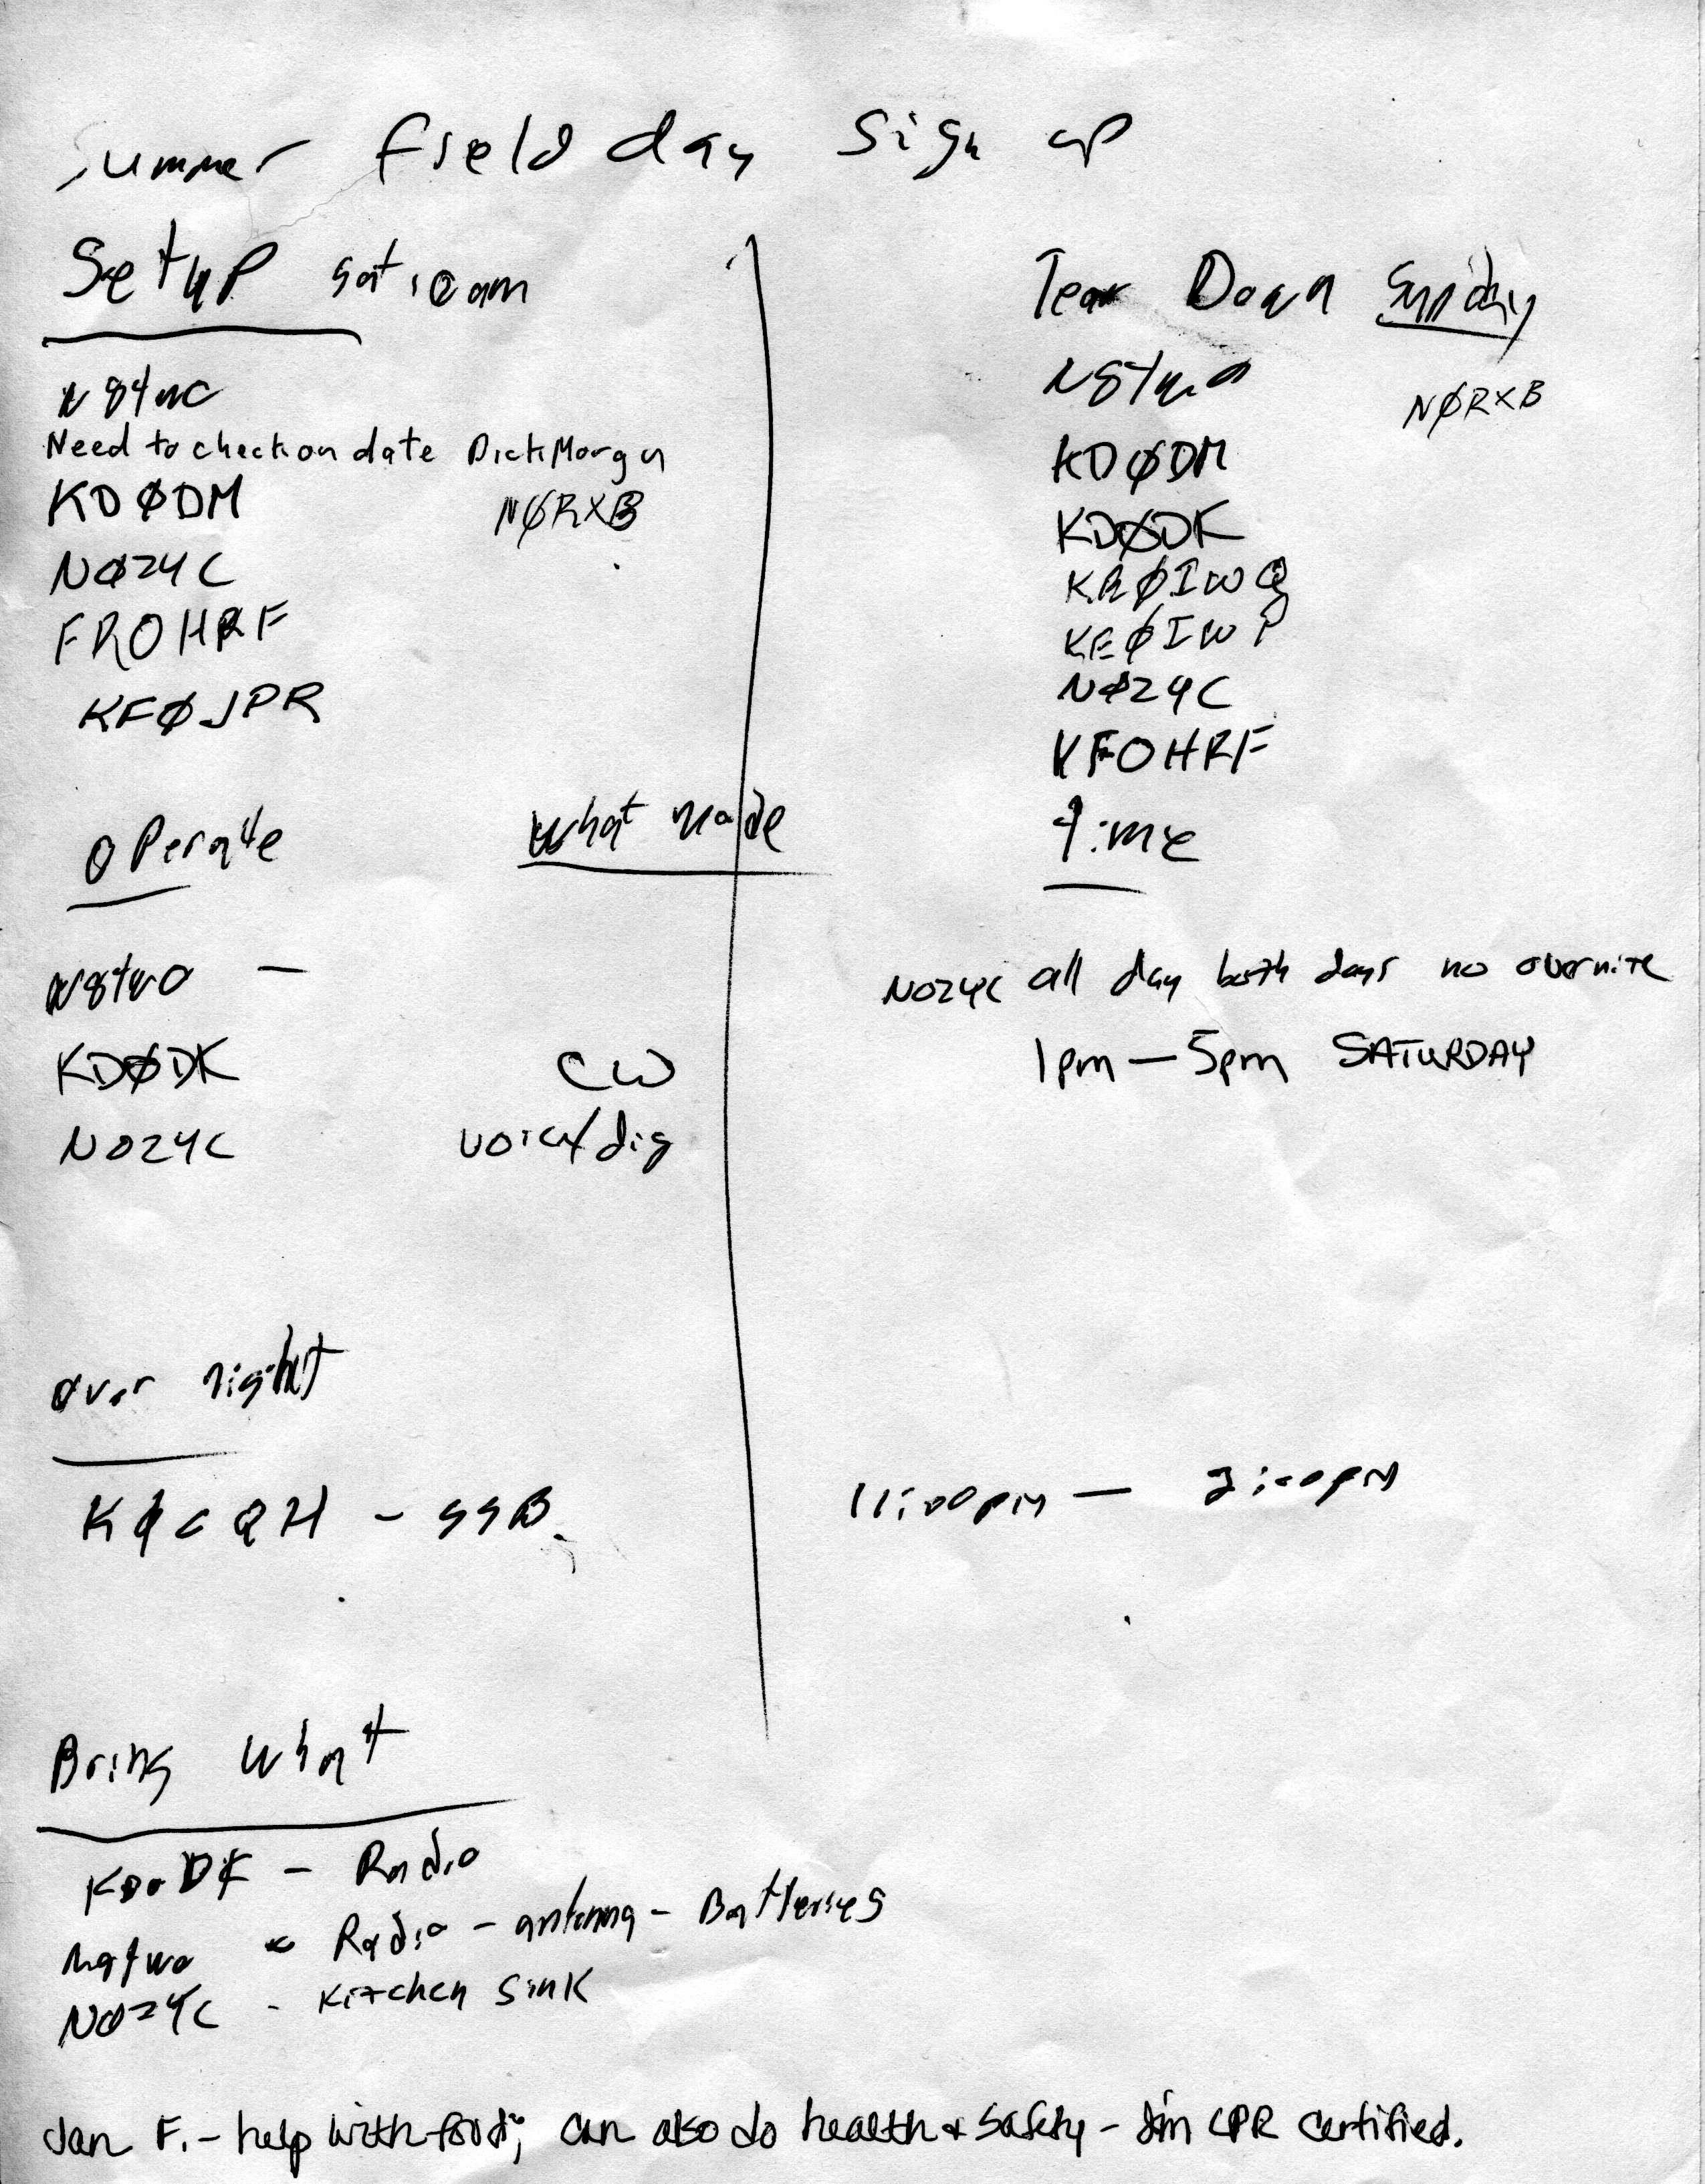 Summer field day Sign up
Setup sat 10am
Need to check on date Dick Morgan
KDØDM NØRXB
NØZYC
FROHRF
KFØJPR
Tear Down Sunday
N8TWO NØRXB
KDØDM
KDØDK
KEØIWP
NØZYC
KFOHRF
Operate What mode time
N8TWO - NOZYC all day both days no overnite
KDØDK CW 1pm - 5pm SATURDAY
NOZYC voice/dig
over night
KØCQH - SSB 11:00pm - 2:00pm
Bring What
KDODK - Radio
N8TWO - Radio - antenna - Batteries
NOZYC - Kitchen Sink
Jan F. - help with food; can also do health & safety - I'm CPR certified.